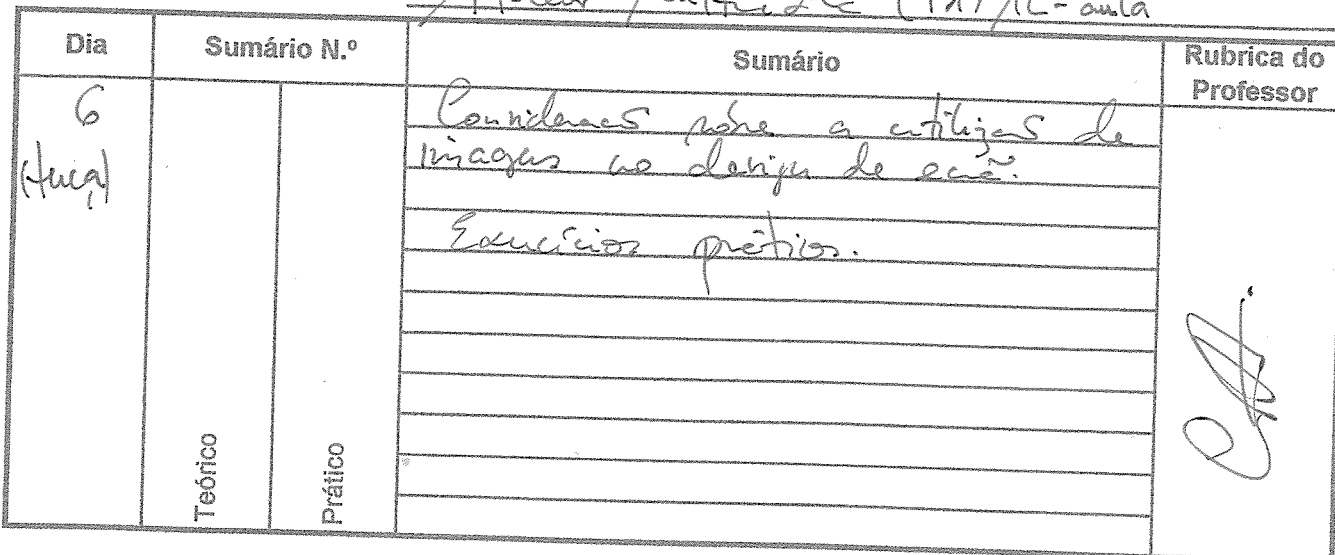 aula
Dia Sumário N.º Sumário Rubrica do Professor
6 (terça)
Teórico Prático
Considerações sobre a utilização de
imagens no design de ecrã.
Exercícios práticos.